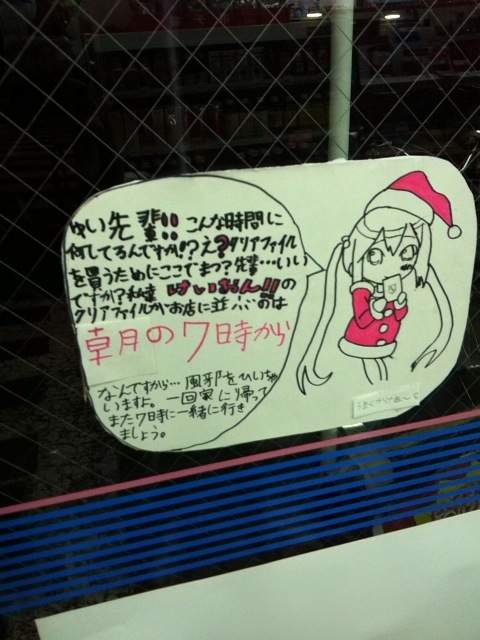 ゆい先輩!! こんな時間に
何してるんですか!?え?クリアファイル
を買うためにここでまつ?先輩…いい
ですか?私達 けいおん!!の
クリアファイルがお店に並ぶのは
朝の7時から
なんですから… 風邪をひいちゃ
いますよ。一回家に帰って
また7時に一緒に行き
ましょう。